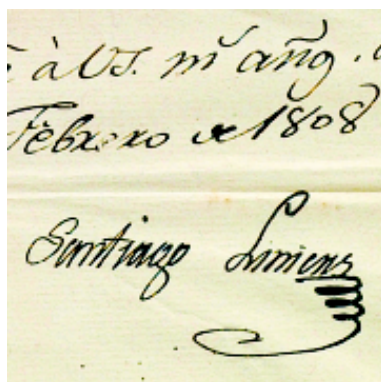 à V.S. m.s añ.s
Febrero de 1808
Santiago Liniers